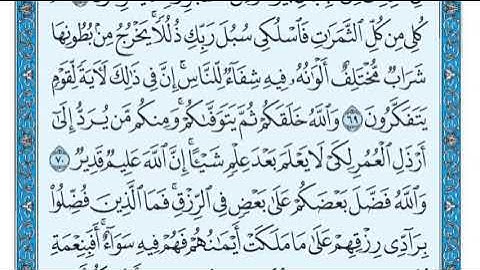 كُلِى مِن كُلِّ ٱلثَّمَرَٰتِ فَٱسْلُكِى سُبُلَ رَبِّكِ ذُلُلًا ۚ يَخْرُجُ مِنۢ بُطُونِهَا
شَرَابٌ مُّخْتَلِفٌ أَلْوَٰنُهُۥ فِيهِ شِفَآءٌ لِّلنَّاسِ ۗ إِنَّ فِى ذَٰلِكَ لَءَايَةً لِّقَوْمٍ
يَتَفَكَّرُونَ ٦٩ وَٱللَّهُ خَلَقَكُمْ ثُمَّ يَتَوَفَّىٰكُمْ ۚ وَمِنكُم مَّن يُرَدُّ إِلَىٰٓ
أَرْذَلِ ٱلْعُمُرِ لِكَىْ لَا يَعْلَمَ بَعْدَ عِلْمٍ شَيْـًٔا ۚ إِنَّ ٱللَّهَ عَلِيمٌ قَدِيرٌ ٧٠
وَٱللَّهُ فَضَّلَ بَعْضَكُمْ عَلَىٰ بَعْضٍ فِى ٱلرِّزْقِ ۚ فَمَا ٱلَّذِينَ فُضِّلُوا۟
بِرَآدِّى رِزْقِهِمْ عَلَىٰ مَا مَلَكَتْ أَيْمَٰنُهُمْ فَهُمْ فِيهِ سَوَآءٌ ۚ أَفَبِنِعْمَةِ